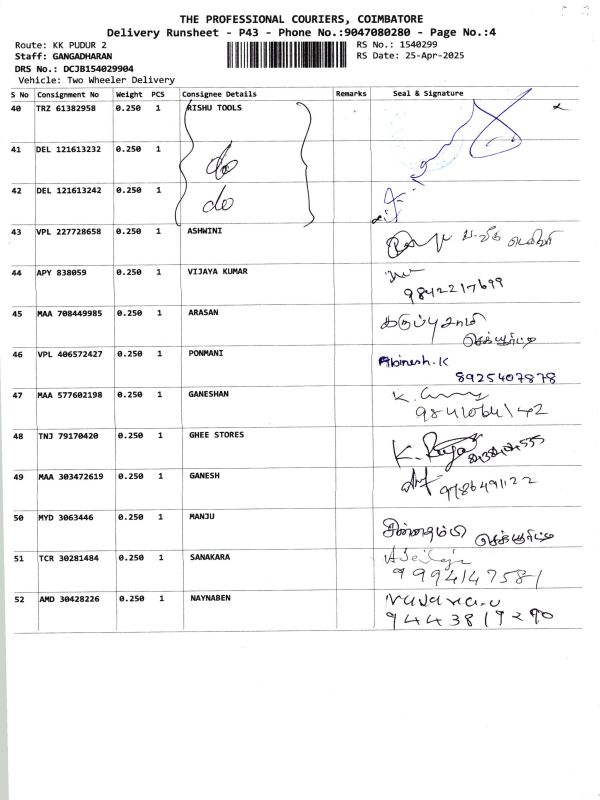 THE PROFESSIONAL COURIERS, COIMBATORE
Delivery Runsheet - P43 - Phone No.:9047080280 - Page No.:4
Route: KK PUDUR 2
RS No.: 1540299
Staff: GANGADHARAN
RS Date: 25-Apr-2025
DRS No.: DCJB154029904
Vehicle: Two Wheeler Delivery
S No Consignment No Weight PCS Consignee Details Remarks Seal & Signature
40 TRZ 61382958 0.250 1 RISHU TOOLS
41 DEL 121613232 0.250 1 do
42 DEL 121613242 0.250 1 do
43 VPL 227728658 0.250 1 ASHWINI
44 APY 838059 0.250 1 VIJAYA KUMAR
9842217699
45 MAA 708449985 0.250 1 ARASAN கருப்புசாமி
செக்யூரிட்டி
46 VPL 406572427 0.250 1 PONMANI Abinesh.K
8925407878
47 MAA 577602198 0.250 1 GANESHAN
9841064142
48 TNJ 79170420 0.250 1 GHEE STORES K. Raja
49 MAA 303472619 0.250 1 GANESH
9786491122
50 MYD 3063446 0.250 1 MANJU
செக்யூரிட்டி
51 TCR 30281484 0.250 1 SANAKARA
9994147581
52 AMD 30428226 0.250 1 NAYNABEN
9443819290